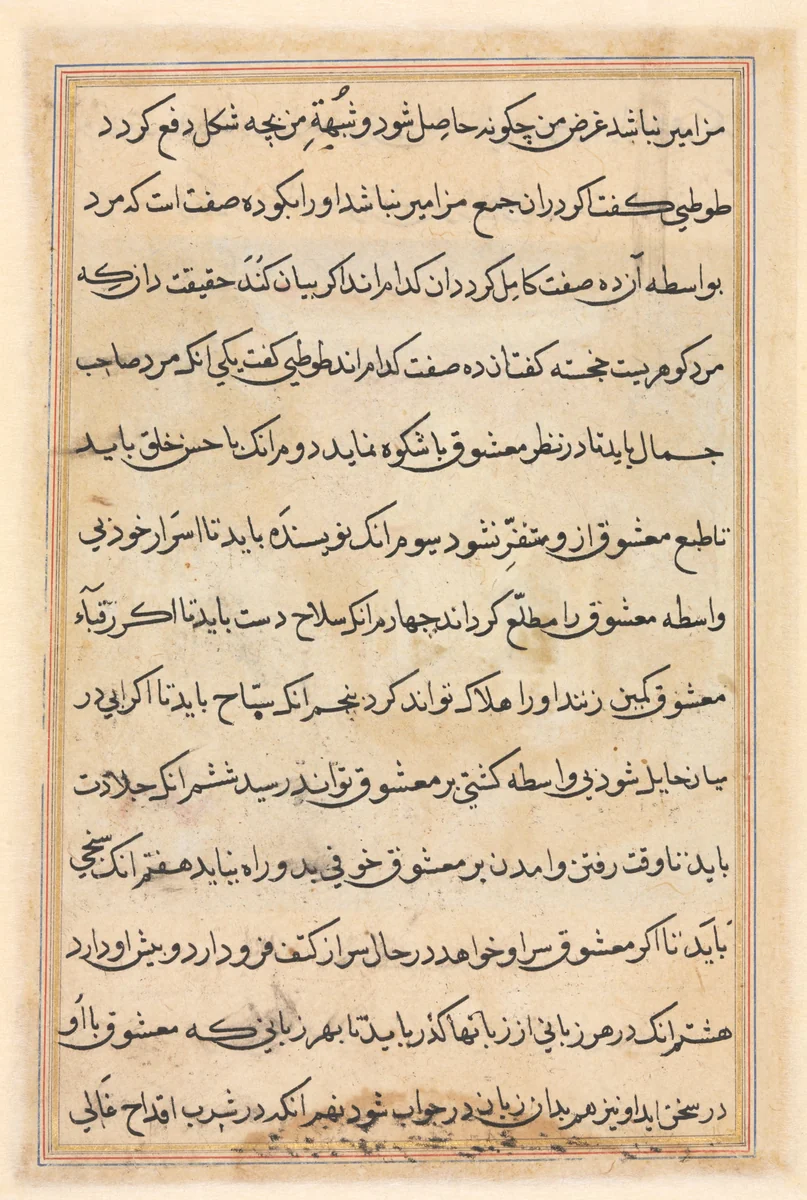 مزامیر نباشد غرض من چکونه حاصل شود و شُبهةِ من بچه شکل دفع کردد
طوطی کفت اکر دران جمع مزامیر نباشد اورا بکو ده صفت است که مرد
بواسطه آن ده صفت کامِل کردد ان کدام اند اکر بیان کُنَد حقیقت دان که
مرد کوهریست خجسته کفت ان ده صفت کدام اند طوطی کفت یکی انک مرد صاحب
جمال باید تا در نظر معشوق با شکوه نماید دوم انک با حسن خلق باید
تا طبع معشوق از و متنفِّر نشود سوم انک نویسنده باید تا اسرار خود بی
واسطه معشوق را مطلّع کرداند چهارم انک سلاح دست باید تا اکر رقبآء
معشوق کمین زنند اورا هلاک تواند کرد پنجم انک سبّاح باید تا اکر ابی در
میان حایل شود بی واسطه کشتی بر معشوق تواند رسید ششم انک جلادت
باید تا وقت رفتن و امدن بر معشوق خوفی بدو راه نیاید هفتم انک سخی
باید تا اکر معشوق سر او خواهد در حال سر از کتف فرود ارد و پیش او دارد
هشتم انک در هر زبانی از زبانها کذر باید تا بهر زبانی که معشوق با او
در سخن اید او نیز هم بدان زبان در جواب شود نهم انکه در شرب اقداح غالی